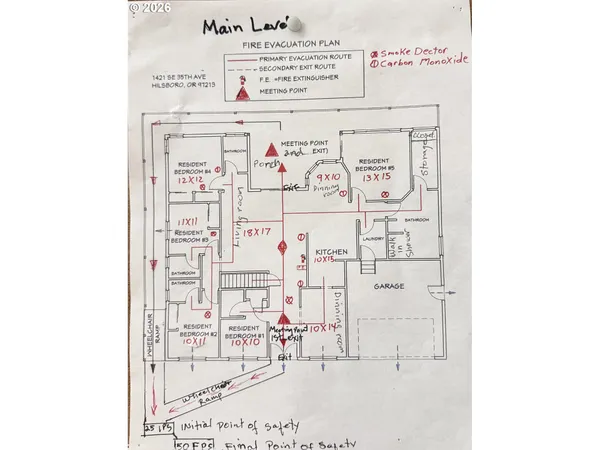 © 2026
Main Level
FIRE EVACUATION PLAN
PRIMARY EVACUATION ROUTE
SECONDARY EXIT ROUTE
F.E. =FIRE EXTINGUISHER
MEETING POINT
Smoke Dector
Carbon Monoxide
1421 SE 35TH AVE
HILSBORO, OR 97213
MEETING POINT
and EXIT)
Porch
Exit
BATHROOM
RESIDENT
BEDROOM #4
12X12
9X10
Dinning
room
RESIDENT
BEDROOM #5
13X15
Closet
Storage
11X11
RESIDENT
BEDROOM #3
Living room
18X17
BATHROOM
LAUNDRY
Walk
in
Shower
KITCHEN
10X15
BATHROOM
BATHROOM
GARAGE
WHEELCHAIR
RAMP
RESIDENT
BEDROOM #2
10X11
RESIDENT
BEDROOM #1
10X10
Meeting Point
1st EXIT
Exit
10X14
Dining room
Wheelchair
Ramp
25 FPS Initial Point of Safety
50 FPS Final Point of Safety